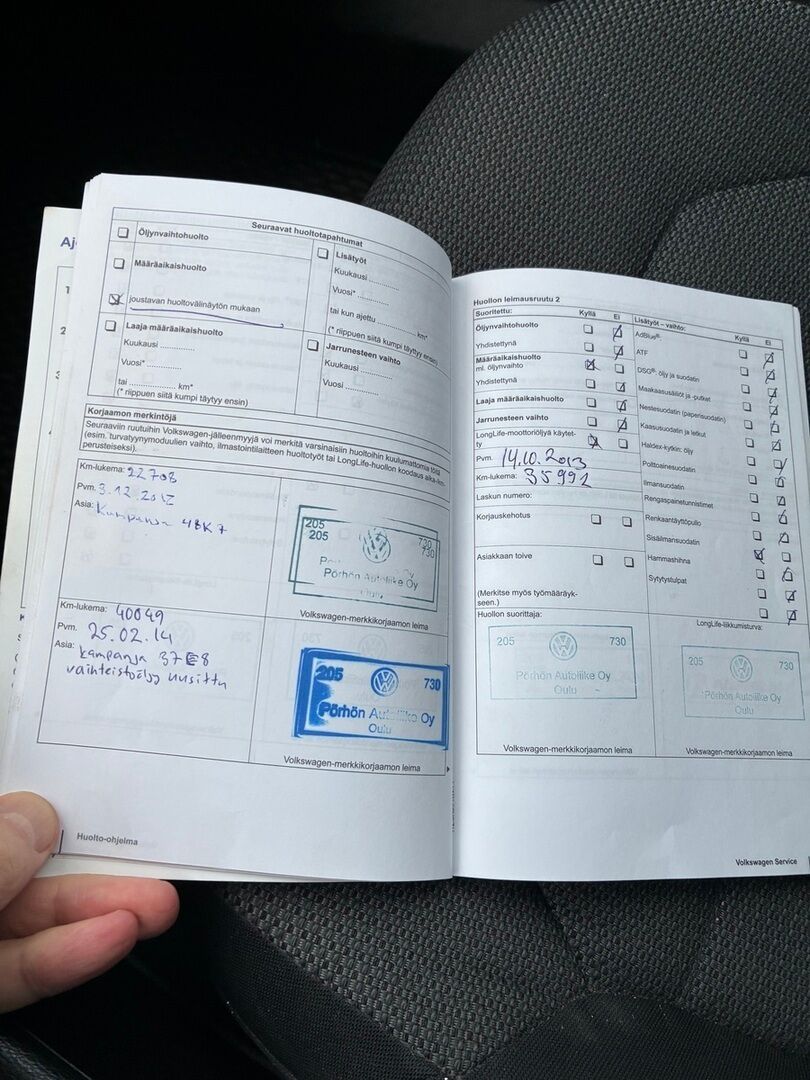 Aj
1
2
3
4
Seuraavat huoltotapahtumat
Öljynvaihtohuolto
Määräaikaishuolto
joustavan huoltovälinäytön mukaan
Laaja määräaikaishuolto
Kuukausi ............
Vuosi* ............
tai ............ km*
(* riippuen siitä kumpi täytyy ensin)
Lisätyöt
Kuukausi ............
Vuosi* ............
tai kun ajettu ............ km*
(* riippuen siitä kumpi täytyy ensin)
Jarrunesteen vaihto
Kuukausi ............
Vuosi ............
Korjaamon merkintöjä
Seuraaviin ruutuihin Volkswagen-jälleenmyyjä voi merkitä varsinaisiin huoltoihin kuulumattomia töitä
(esim. turvatyynymoduulien vaihto, ilmastointilaitteen huoltotyöt tai LongLife-huollon koodaus aika-/km-
perusteiseksi).
Km-lukema: 22708
Pvm. 3.12.2012
Asia: Kampanja 48K7
205 730
205 730
Pörhön Autoliike Oy
Oulu
Volkswagen-merkkikorjaamon leima
Km-lukema: 40049
Pvm. 25.02.14
Asia: Kampanja 37E8
vaihteistoöljy uusittu
205 730
Pörhön Autoliike Oy
Oulu
Volkswagen-merkkikorjaamon leima
Huolto-ohjelma
Huollon leimausruutu 2
Suoritettu: Kyllä Ei
Öljynvaihtohuolto
Yhdistettynä
Määräaikaishuolto
ml. öljynvaihto
Yhdistettynä
Laaja määräaikaishuolto
Jarrunesteen vaihto
LongLife-moottoriöljyä käytet-
ty
Pvm. 14.10.2013
Km-lukema: 35992
Laskun numero:
Korjauskehotus
Asiakkaan toive
(Merkitse myös työmääräyk-
seen.)
Lisätyöt – vaihto: Kyllä Ei
AdBlue®.
ATF
DSG®- öljy ja suodatin
Maakaasusäiliöt ja -putket
Nestesuodatin (paperisuodatin)
Kaasusuodatin ja letkut
Haldex-kytkin: öljy
Polttoainesuodatin
Ilmansuodatin
Rengaspainetunnistimet
Renkaantäyttöpullo
Sisäilmansuodatin
Hammashihna
Sytytystulpat
Huollon suorittaja:
205 730
Pörhön Autoliike Oy
Oulu
Volkswagen-merkkikorjaamon leima
LongLife-liikkumisturva:
205 730
Pörhön Autoliike Oy
Oulu
Volkswagen-merkkikorjaamon leima
Volkswagen Service